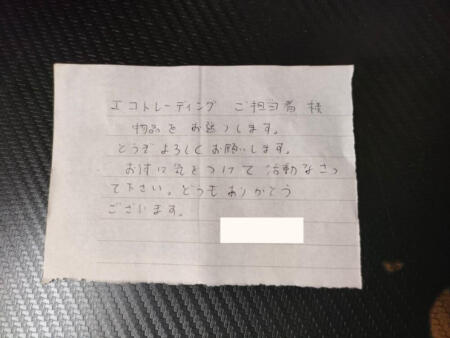 エコトレーディング ご担当者 様
物品を お送りします。
どうぞ よろしく お願いします。
お体に 気を つけて 活動なさっ
て下さい。どうも ありがとう
ございます。